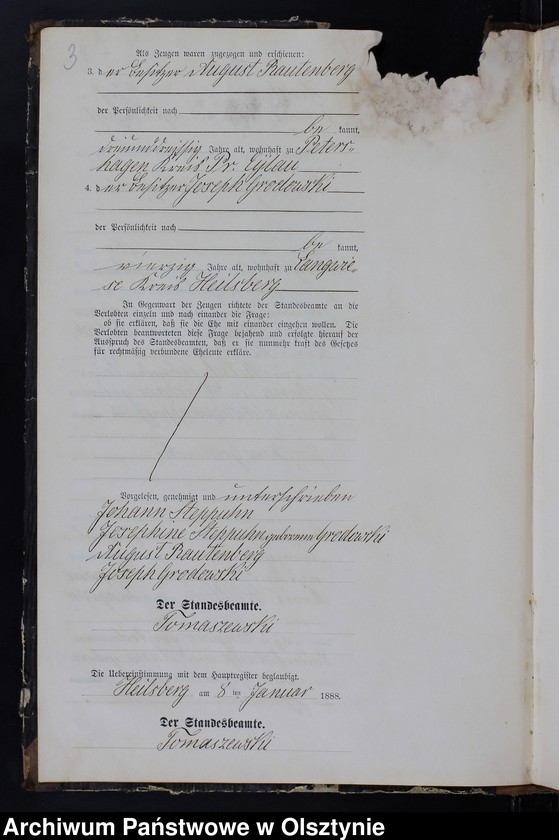 3
Als Zeugen waren zugezogen und erschienen:
3. der Besitzer August Rautenberg
der Persönlichkeit nach
be kannt,
dreiunddreissig Jahre alt, wohnhaft zu Peters-
hagen Kreis Pr. Eylau
4. der Besitzer Joseph Grodowski
der Persönlichkeit nach
be kannt,
vierzig Jahre alt, wohnhaft zu Langwie-
se Kreis Heilsberg
In Gegenwart der Zeugen richtete der Standesbeamte an die
Verlobten einzeln und nach einander die Frage:
ob sie erklären, daß sie die Ehe mit einander eingehen wollen. Die
Verlobten beantworteten diese Frage bejahend und erfolgte hierauf der
Ausspruch des Standesbeamten, daß er sie nunmehr kraft des Gesetzes
für rechtmäßig verbundene Eheleute erkläre.
Vorgelesen, genehmigt und unterschrieben
Johann Steppuhn
Josephine Steppuhn geborene Grodowski
August Rautenberg
Joseph Grodowski
Der Standesbeamte.
Tomaszewski
Die Uebereinstimmung mit dem Hauptregister beglaubigt.
Heilsberg am 8 ten Januar 1888.
Der Standesbeamte.
Tomaszewski
Archiwum Państwowe w Olsztynie